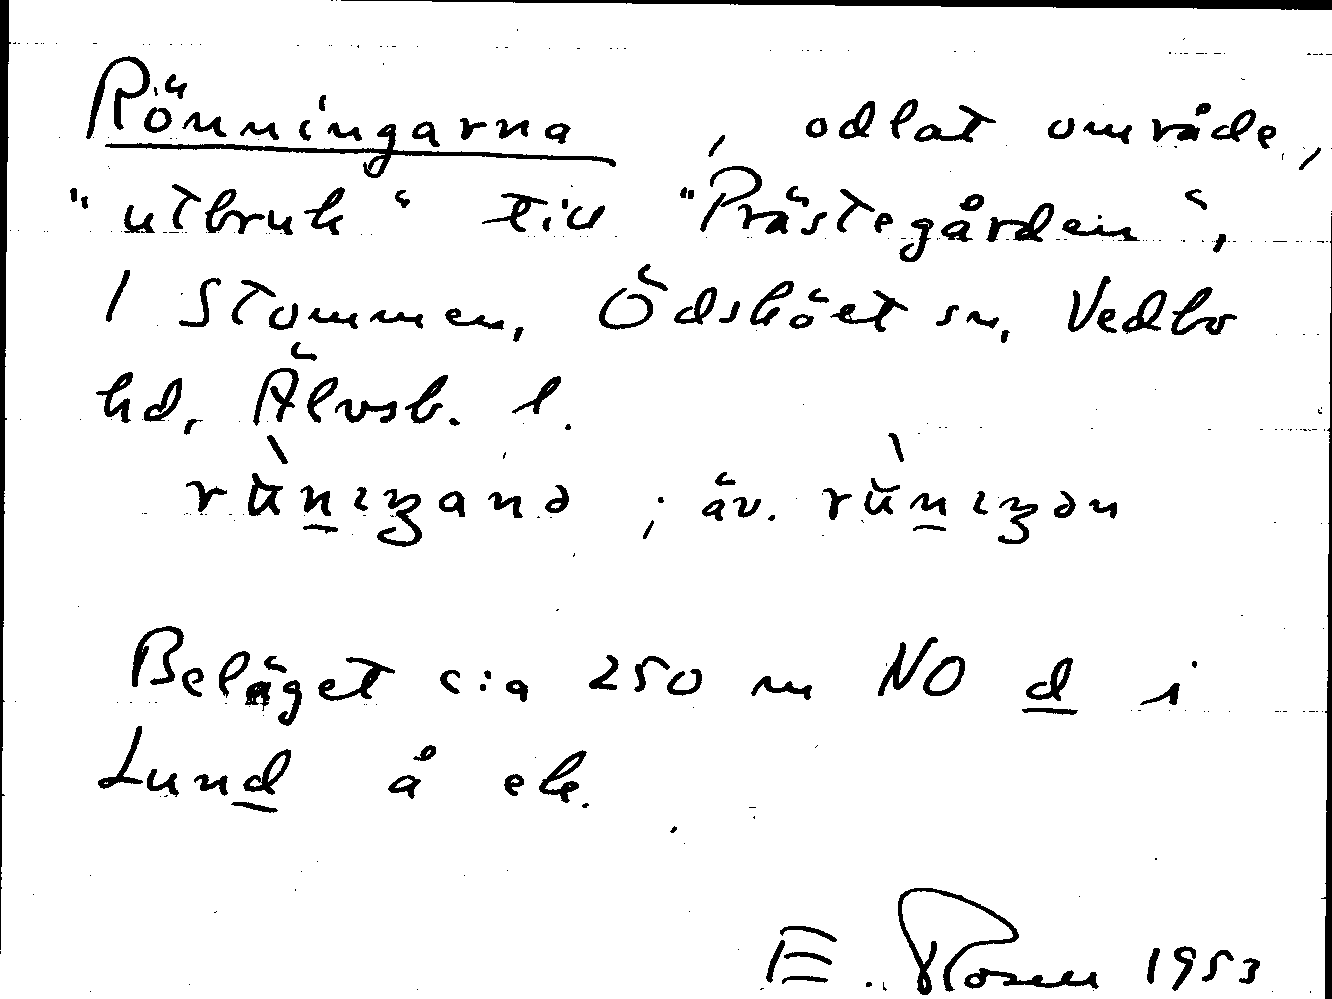 Rönningarna, odlat område,
"utbruk" till "Prästegården",
1 Stommen, Ödskölt sn, Vedbo
hd, Älvsb. l.
rùnıŋanə; äv. rùnıŋən
Beläget c:a 250 m NO d i
Lund å ek.
E. Rosen 1953